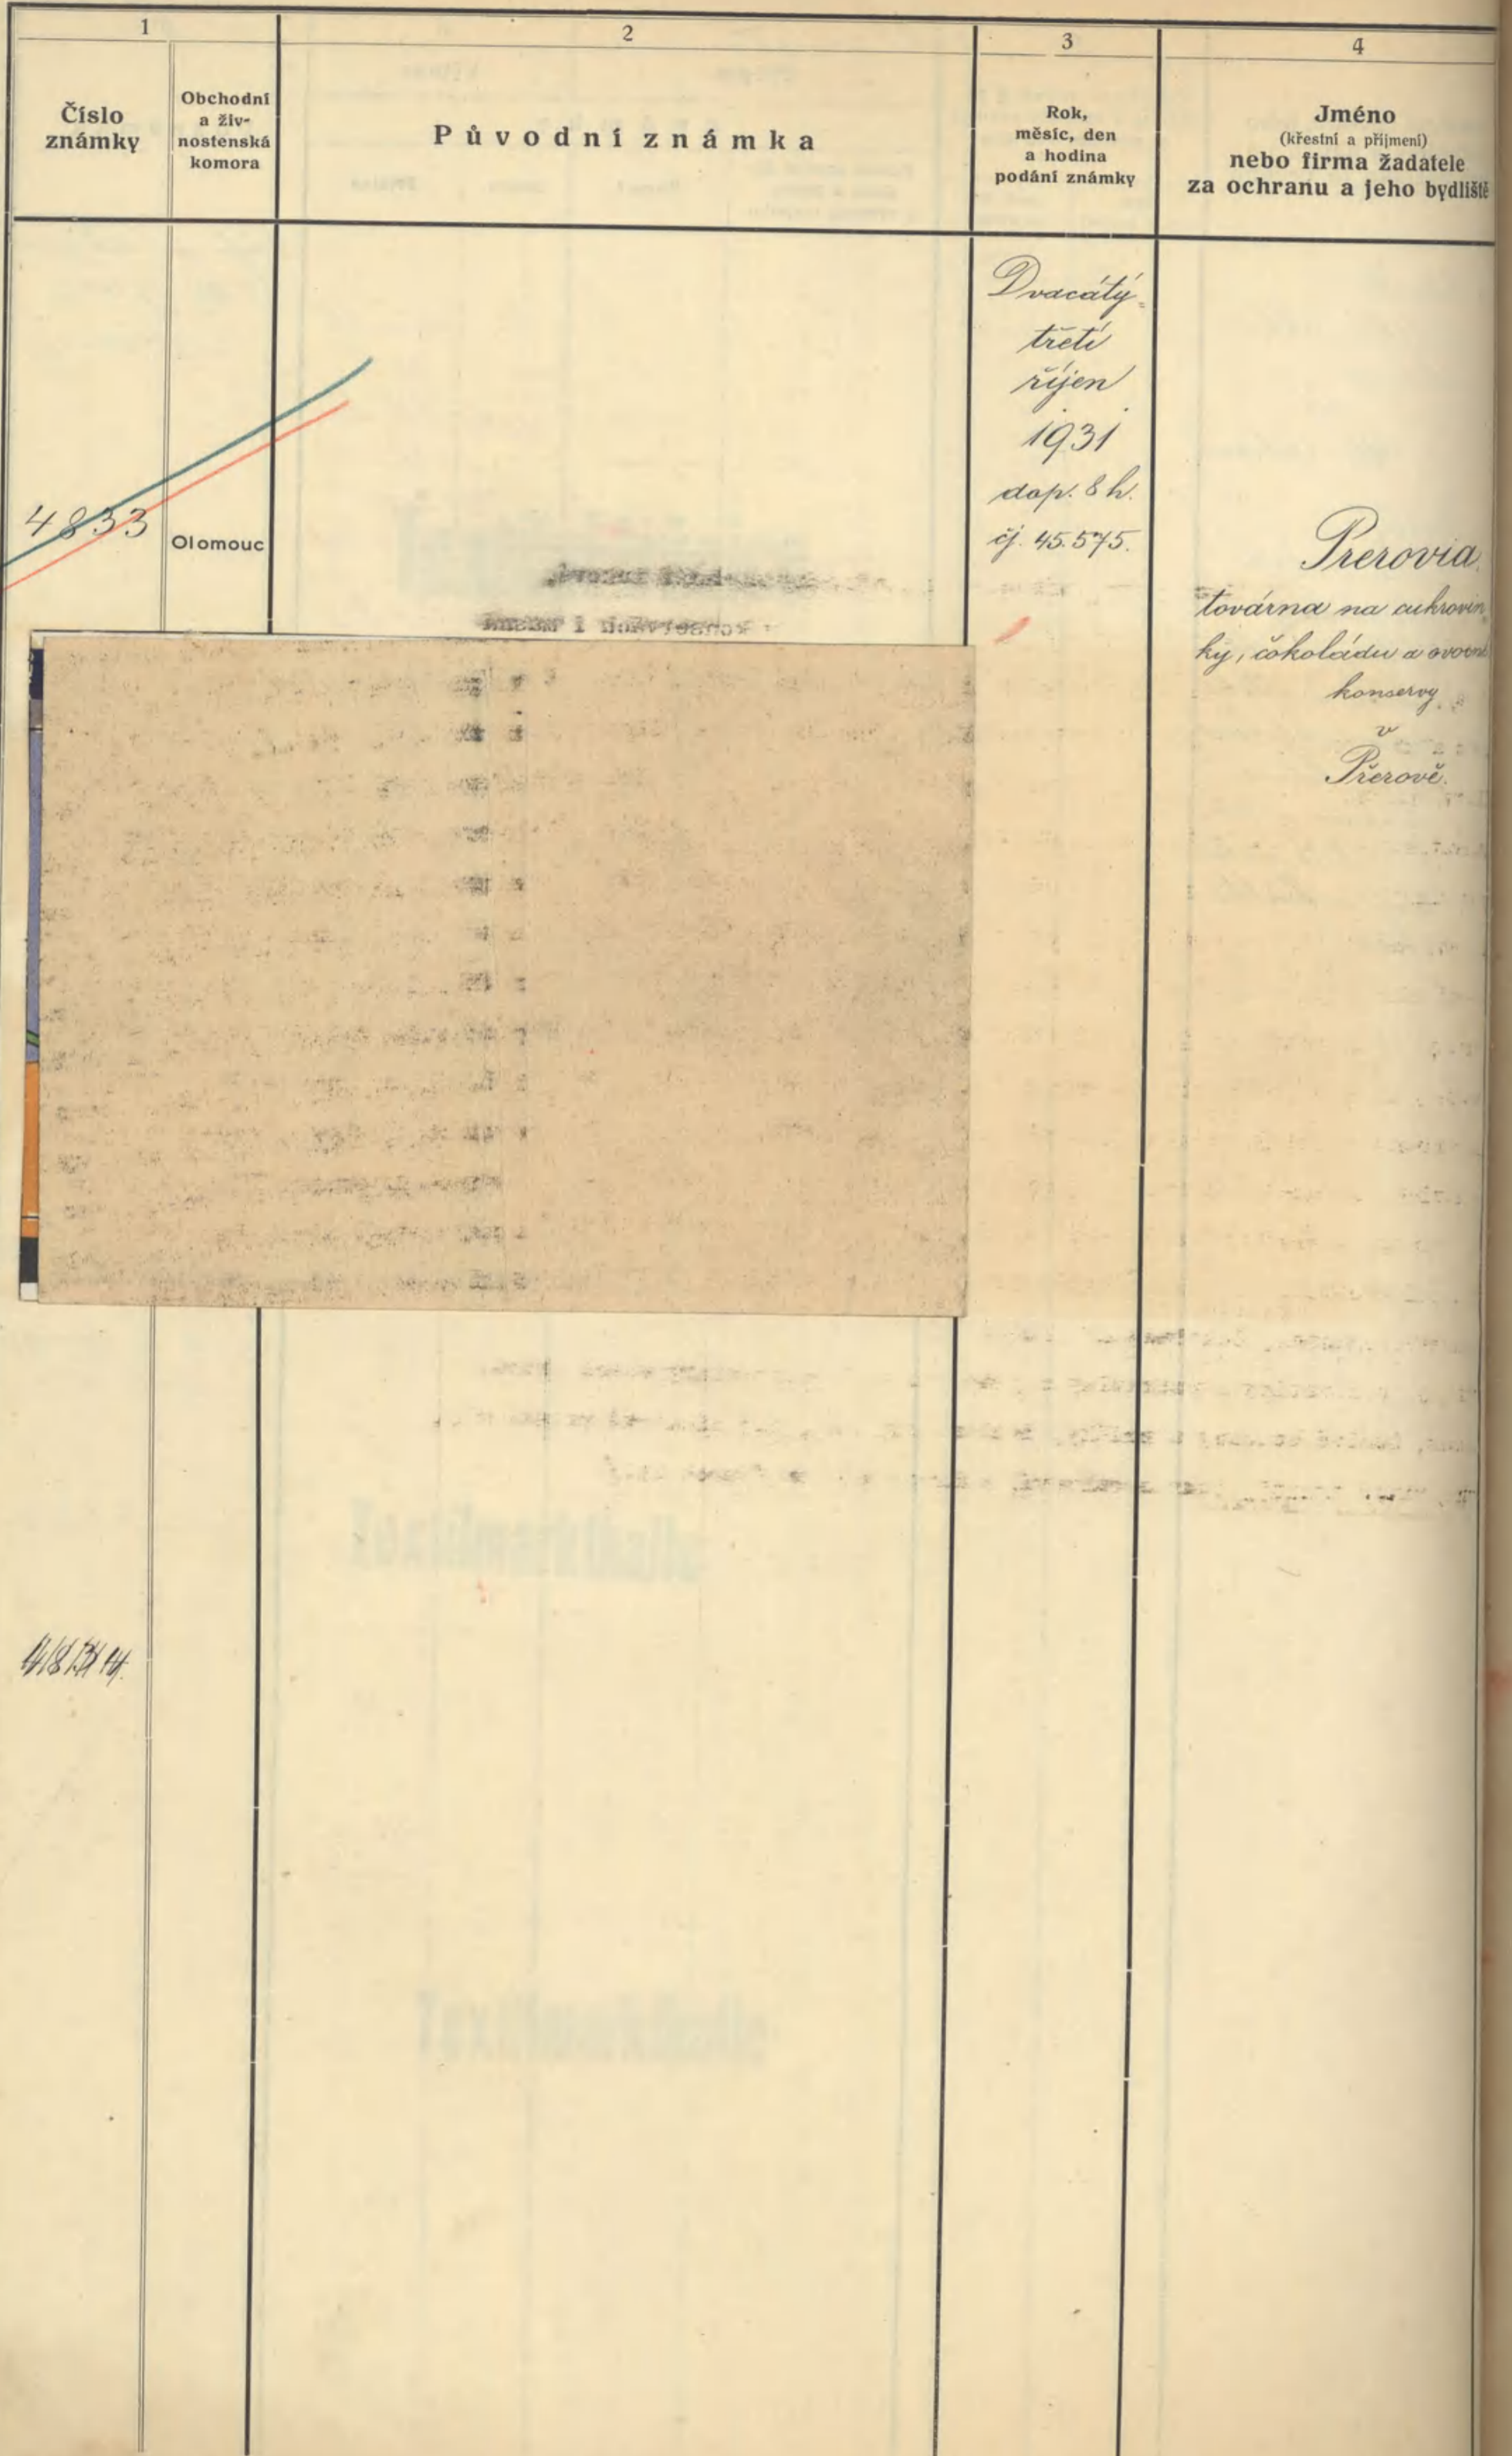 1
2
3
4
Číslo
známky
Obchodní
a živ-
nostenská
komora
Původní známka
Rok,
měsíc, den
a hodina
podání známky
Jméno
(křestní a příjmení)
nebo firma žadatele
za ochranu a jeho bydliště
4833
Olomouc
Dvacátý
třetí
říjen
1931
dop. 8 h.
čj. 45.575.
Prerovia
továrna na cukrovin
ky, čokoládu a ovocné
konservy
v
Přerově.